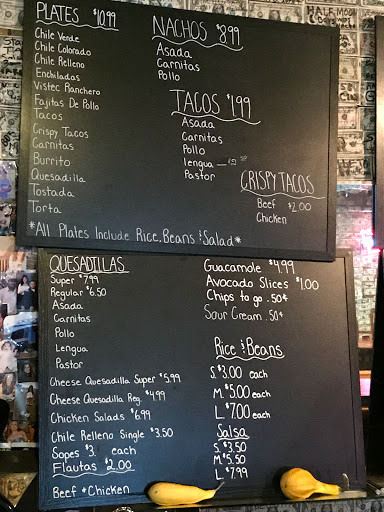 PLATES $10.99
Chile Verde
Chile Colorado
Chile Relleno
Enchiladas
Vistec Ranchero
Fajitas De Pollo
Tacos
Crispy Tacos
Carnitas
Burrito
Quesadilla
Tostada
Torta
*All Plates Include Rice, Beans & Salad*
NACHOS $8.99
Asada
Carnitas
Pollo
TACOS $1.99
Asada
Carnitas
Pollo
lengua
Pastor
CRISPY TACOS
Beef $2.00
Chicken
QUESADILLAS
Super $7.99
Regular $6.50
Asada
Carnitas
Pollo
Lengua
Pastor
Cheese Quesadilla Super $5.99
Cheese Quesadilla Reg. $4.99
Chicken Salads $6.99
Chile Relleno Single $3.50
Sopes $3. each
Flautas $2.00
Beef & Chicken
Guacamole $4.99
Avocado Slices $1.00
Chips to go .50¢
Sour Cream .50¢
Rice & Beans
S. $3.00 each
M. $5.00 each
L. $7.00 each
Salsa
S. $3.50
M. $5.50
L. $7.99
HALF MOON